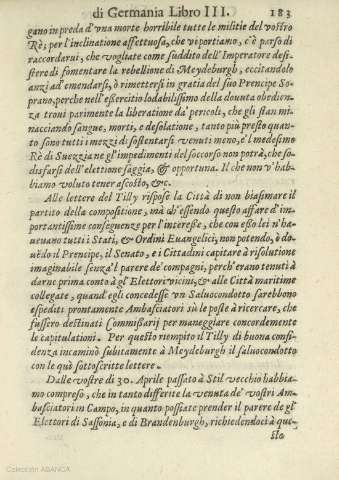 di Germania Libro III. 183
gano in preda d'vna morte horribile tutte le militie del vostro
Rè; per l'inclinatione affettuosa, che vi portiamo, c'è parso di
raccordarui, che vogliate come suddito dell'Imperatore desi-
stere di fomentare la rebellione di Meydeburgh, eccitandolo
anzi ad'emendarsi, ò rimettersi in gratia del suo Prencipe So-
prano, perche nell'essercitio lodabilissimo della douuta obedien-
za troui parimente la liberatione da' pericoli, che gli stan mi-
nacciando sangue, morti, e desolatione, tanto più presto quan-
to sono tutti i mezzi di sostentarsi venuti meno, e'l medesimo
Rè di Suezzia ne gl'impedimenti del soccorso non potrà, che so-
disfarsi dell'elettione saggia, & opportuna. Il che non v'hab-
biamo voluto tener ascosto, &c.
Alle lettere del Tilly rispose la Città di non biasimare il
partito della compositione, mà ch'essendo questo affare d'im-
portantissime conseguenze per l'interesse, che con esso lei n'ha-
ueuano tutti i Stati, & Ordini Euangelici, non potendo, è do-
uédo il Prencipe, il Senato, e i Cittadini capitare à risolutione
imaginabile senza'l parere de' compagni, perch'erano tenuti à
darne prima conto à gl'Elettori vicini, & alle Città maritime
collegate, quand'egli concedesse vn Saluocondotto sarebbono
espediti prontamente Ambasciatori sù le poste à ricercare, che
fussero destinati Commissarij per maneggiare concordemente
le capitulationi. Per questo riempito il Tilly di buona confi-
denza incaminò subitamente à Meydeburgh il saluocondotto
con le quì sottoscritte lettere.
Dalle vostre di 30. Aprile passato à Stil vecchio habbia-
mo compreso, che in tanto differite la venuta de' vostri Am-
basciatori in Campo, in quanto possiate prender il parere de gl'
Elettori di Sassonia, e di Brandenburgh, richiedendoci à que-
sto
Colección ABANCA